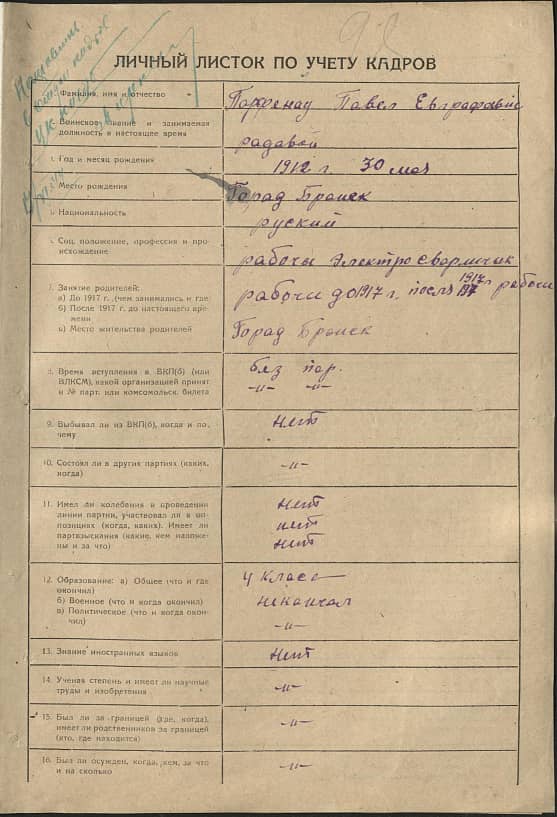 ЛИЧНЫЙ ЛИСТОК ПО УЧЕТУ КАДРОВ
Фамилия, имя и отчество
Парфенау Павел Евграфавис
Воинское звание и занимаемая
должность в настоящее время
радавой
3. Год и месяц рождения
1912 г. 30 мая
Место рождения
Горад Брянск
Национальность
руский
Соц. положение, профессия и про-
исхождение
рабочы электросварщик
7. Занятие родителей:
а) До 1917 г. (чем занимались и где
б) После 1917 г. до настоящего вре-
мени
в) Место жительства родителей
рабочи до 1917 г. после 1917 г рабочи
Горад Брянск
8. Время вступления в ВКП(б) (или
ВЛКСМ), какой организацией принят
и № парт. или комсомольск. билета
без пар.
-"- -"-
9. Выбывал ли из ВКП(б), когда и по-
чему
нет
10. Состоял ли в других партиях (каких,
когда)
-"-
11. Имел ли колебания в проведении
линии партии, участвовал ли в оп-
позициях (когда, каких). Имеет ли
партвзыскания (какие, кем наложе-
ны и за что)
нет
нет
нет
12. Образование: а) Общее (что и где
окончил)
б) Военное (что и когда окончил)
в) Политическое (что и когда окон-
чил)
4 класс
некончал
-"-
13. Знание иностранных языков
нет
14. Ученая степень и имеет ли научные
труды и изобретения
-"-
15. Был ли за границей (где, когда),
имеет ли родственников за границей
(кто, где находится)
-"-
16. Был ли осужден, когда, кем, за что
и на сколько
-"-